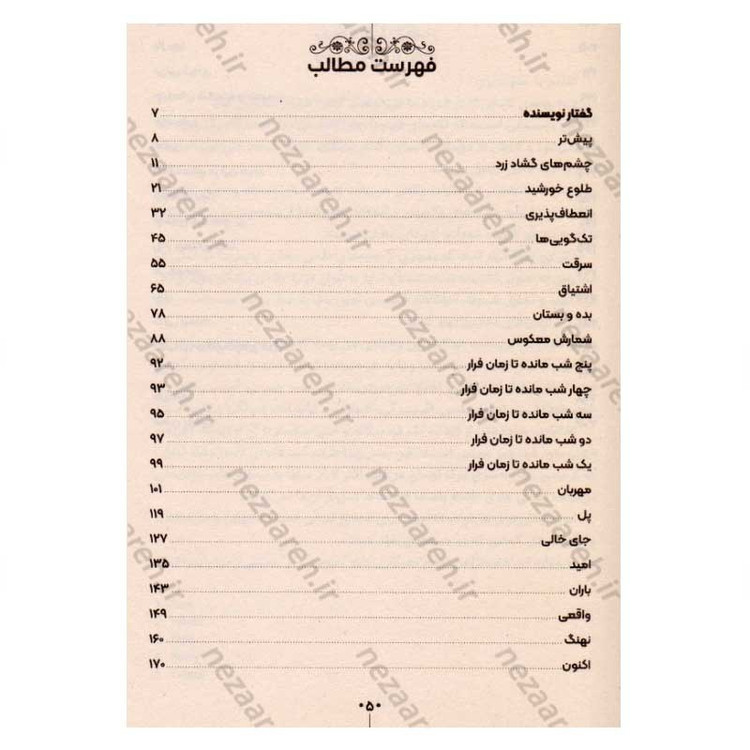 فهرست مطالب
گفتار نویسنده ۷
پیش‌تر ۸
چشم‌های گشاد زرد ۱۱
طلوع خورشید ۲۱
انعطاف‌پذیری ۳۲
تک‌گویی‌ها ۴۵
سرقت ۵۵
اشتیاق ۶۵
بده و بستان ۷۸
شمارش معکوس ۸۸
پنج شب مانده تا زمان فرار ۹۲
چهار شب مانده تا زمان فرار ۹۳
سه شب مانده تا زمان فرار ۹۵
دو شب مانده تا زمان فرار ۹۷
یک شب مانده تا زمان فرار ۹۹
مهربان ۱۰۱
پل ۱۱۹
جای خالی ۱۲۷
امید ۱۳۵
باران ۱۴۳
واقعی ۱۴۹
نهنگ ۱۶۰
اکنون ۱۷۰
۵
nezaareh.ir